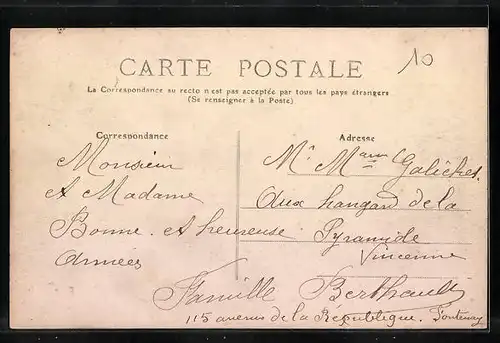 10
CARTE POSTALE
La Correspondance au recto n'est pas acceptée par tous les pays étrangers
(Se renseigner à la Poste)
Correspondance
Monsieur
et Madame
Bonne et heureuse
années
Adresse
Mr Mame Galiches
aux hangard de la
Pyramide
Vincenne
Famille Berthault
115 avenue de la République. Fontenay